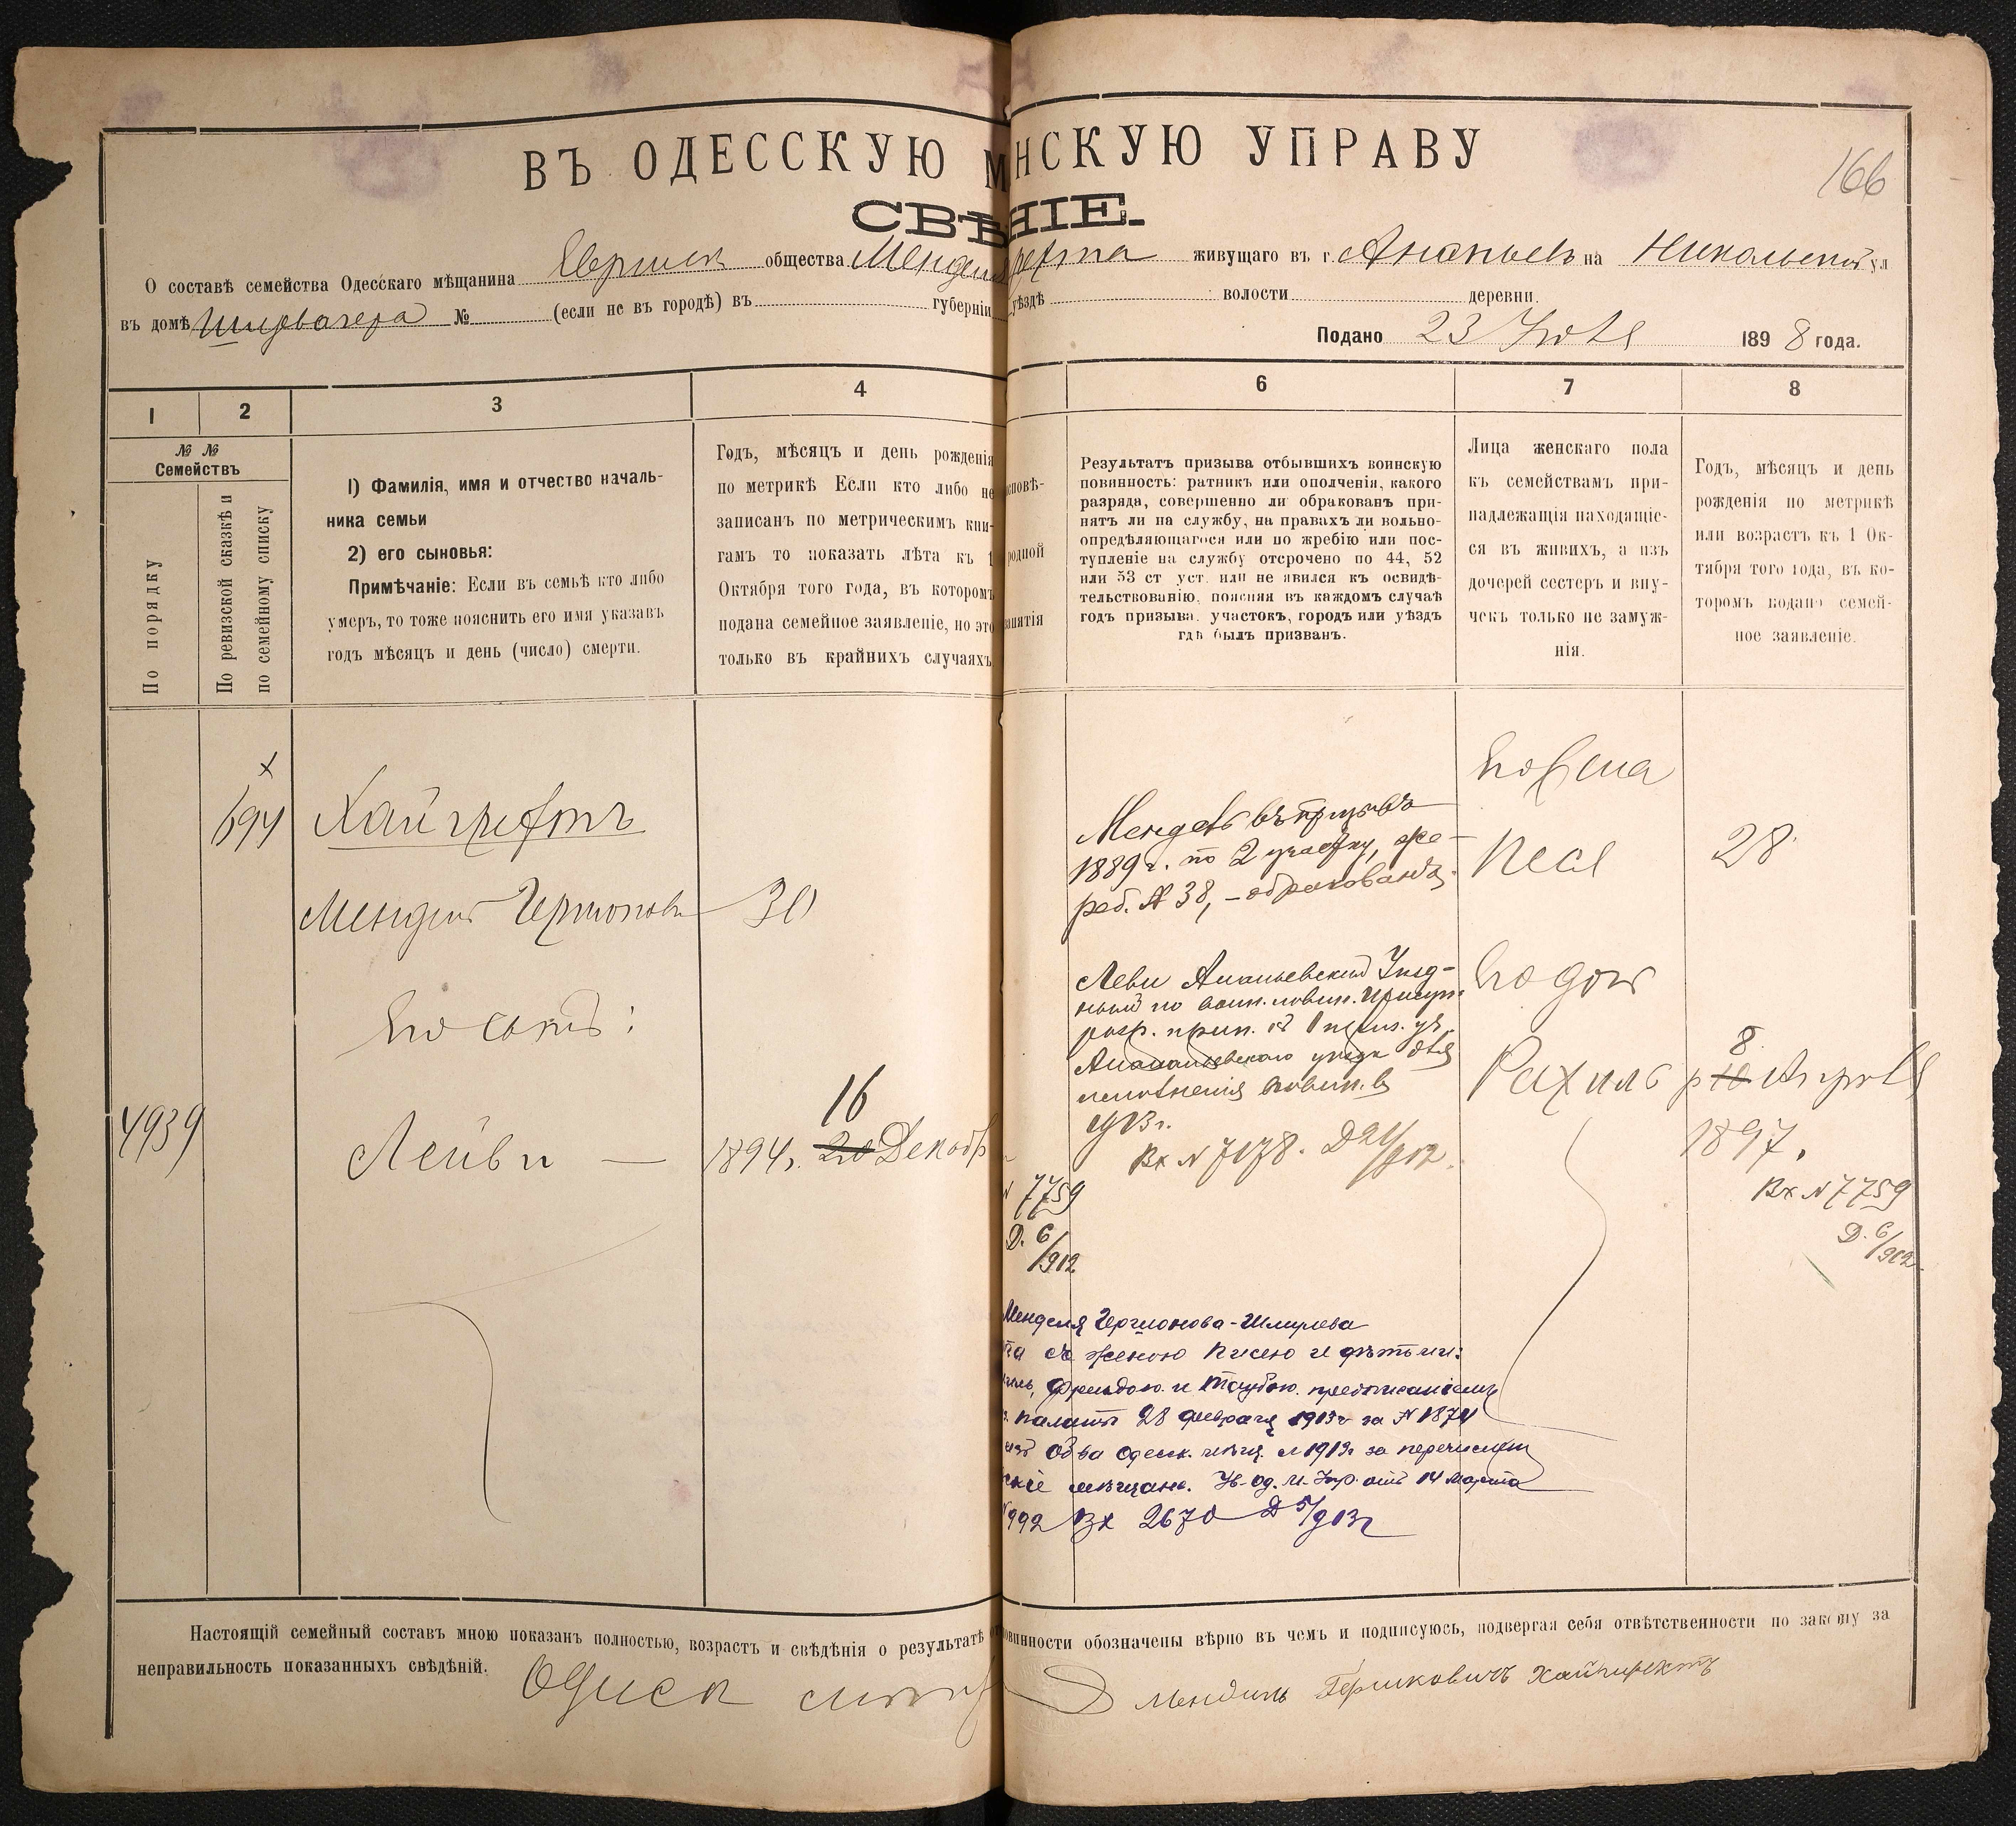 ВЪ ОДЕССКУЮ М НСКУЮ УПРАВУ
166
СВѢ НІЕ.
О составѣ семейства Одесскаго мѣщанина Еврейск общества Мендел живущаго въ г. Ананьевѣ на Никольской ул
въ домѣ № (если не въ городѣ) въ губерніи уѣздѣ волости деревни
Подано 23 Іюля 1898 года.
1 2 3 4 6 7 8
№ №
Семействъ
По порядку
По ревизской сказкѣ и
по семейному списку
1) Фамилія, имя и отчество началь-
ника семьи
2) его сыновья:
Примѣчаніе: Если въ семьѣ кто либо
умеръ, то тоже пояснить его имя указавъ
годъ мѣсяцъ и день (число) смерти.
Годъ, мѣсяцъ и день рожденія
по метрикѣ Если кто либо не
записанъ по метрическимъ кни-
гамъ то показать лѣта къ 1
Октября того года, въ которомъ
подана семейное заявленіе, но это
только въ крайнихъ случаяхъ
сповѣ-
родной
занятія
Результатъ призыва отбывшихъ воинскую
повинность: ратникъ или ополченія, какого
разряда, совершенно ли обракованъ при-
нятъ ли на службу, на правахъ ли вольно-
опредѣляющагося или по жребію или пос-
тупленіе на службу отсрочено по 44, 52
или 53 ст уст. или не явился къ освидѣ-
тельствованію, поясняя въ каждомъ случаѣ
годъ призыва, участокъ, городъ или уѣздъ
гдѣ былъ призванъ.
Лица женскаго пола
къ семействамъ при-
надлежащія находящіе-
ся въ живихъ, а изъ
дочерей сестеръ и вну-
чекъ только не замуж-
нія.
Годъ, мѣсяцъ и день
рожденія по метрикѣ
или возрастъ къ 1 Ок-
тября того года, въ ко-
торомъ подано семей-
ное заявленіе.
х
694 Хайгрехтъ
Мендель 30
Его сынъ:
4939 Лейви — 1894 г. 16 20 Декабр
Мендель въ призывѣ
1889 г. по 2 участку, же-
реб. № 38, – обракованъ.
Леви Ананьевский Уѣзд-
ный по воин. повин. Присут.
Ананьевского уѣзда для
исполненія повин. въ
1913 г.
Вх № 7178. Д 21/912.
Его жена
Песя 28
Его дочь
Рахиль р 8 10 Апрѣля
1897.
Вх № 7759
Д. 6/912
№ 7759
Д. 6/912
Менделя
та съ женою Писею и дѣтьми:
Фрейдою и Таубою предписаніемъ
палаты 28 февраля 1913 г за № 1874
из об-ва Одесск. мѣщ. с 1913 г за перечислен
мѣщане. Ув. Од. М. Упр. отъ 14 Марта
№ 992 Вх 2670 Д 5/913 г
Настоящій семейный составъ мною показанъ полностью, возрастъ и свѣдѣнія о результатѣ овинности обозначены вѣрно въ чемъ и подписуюсь, подвергая себя отвѣтственности по закону за
неправильность показанныхъ свѣдѣній.
Мендиль Гершковичъ Хайгирехтъ